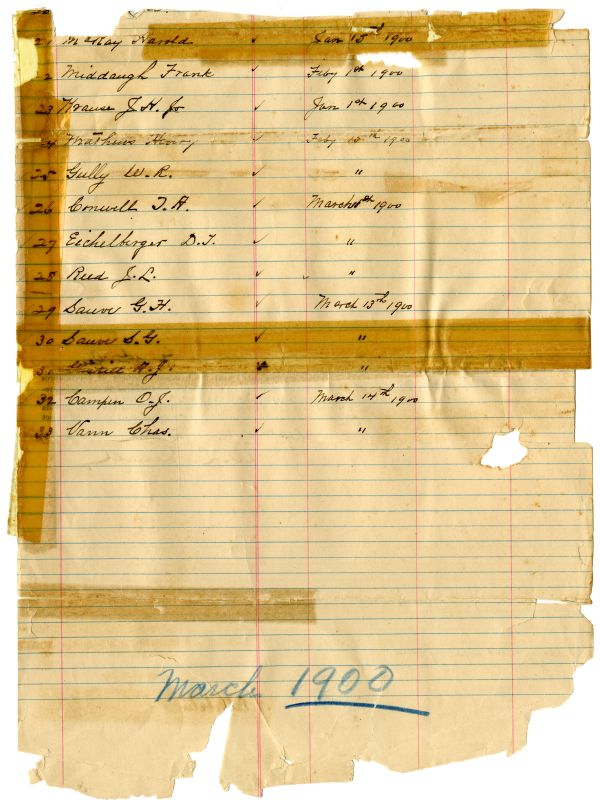 21 McKay Harold ✓ Jan 15th 1900
22 Middaugh Frank ✓ Feby 1st 1900
23 Krause J. H. Jr ✓ Jan 1st 1900
24 Henry ✓ Feby 10th 1900
25 Gully W. R. ✓ "
26 Conwell T. A. ✓ March 1st 1900
27 Eichelberger D. T. ✓ "
28 Reed J. L. ✓ "
29 Sauve G. H. ✓ March 13th 1900
30 Sauve S. G. ✓ "
31 R. J. "
32 Campen O. J. ✓ March 14th 1900
33 Vann Chas. ✓ "
March 1900